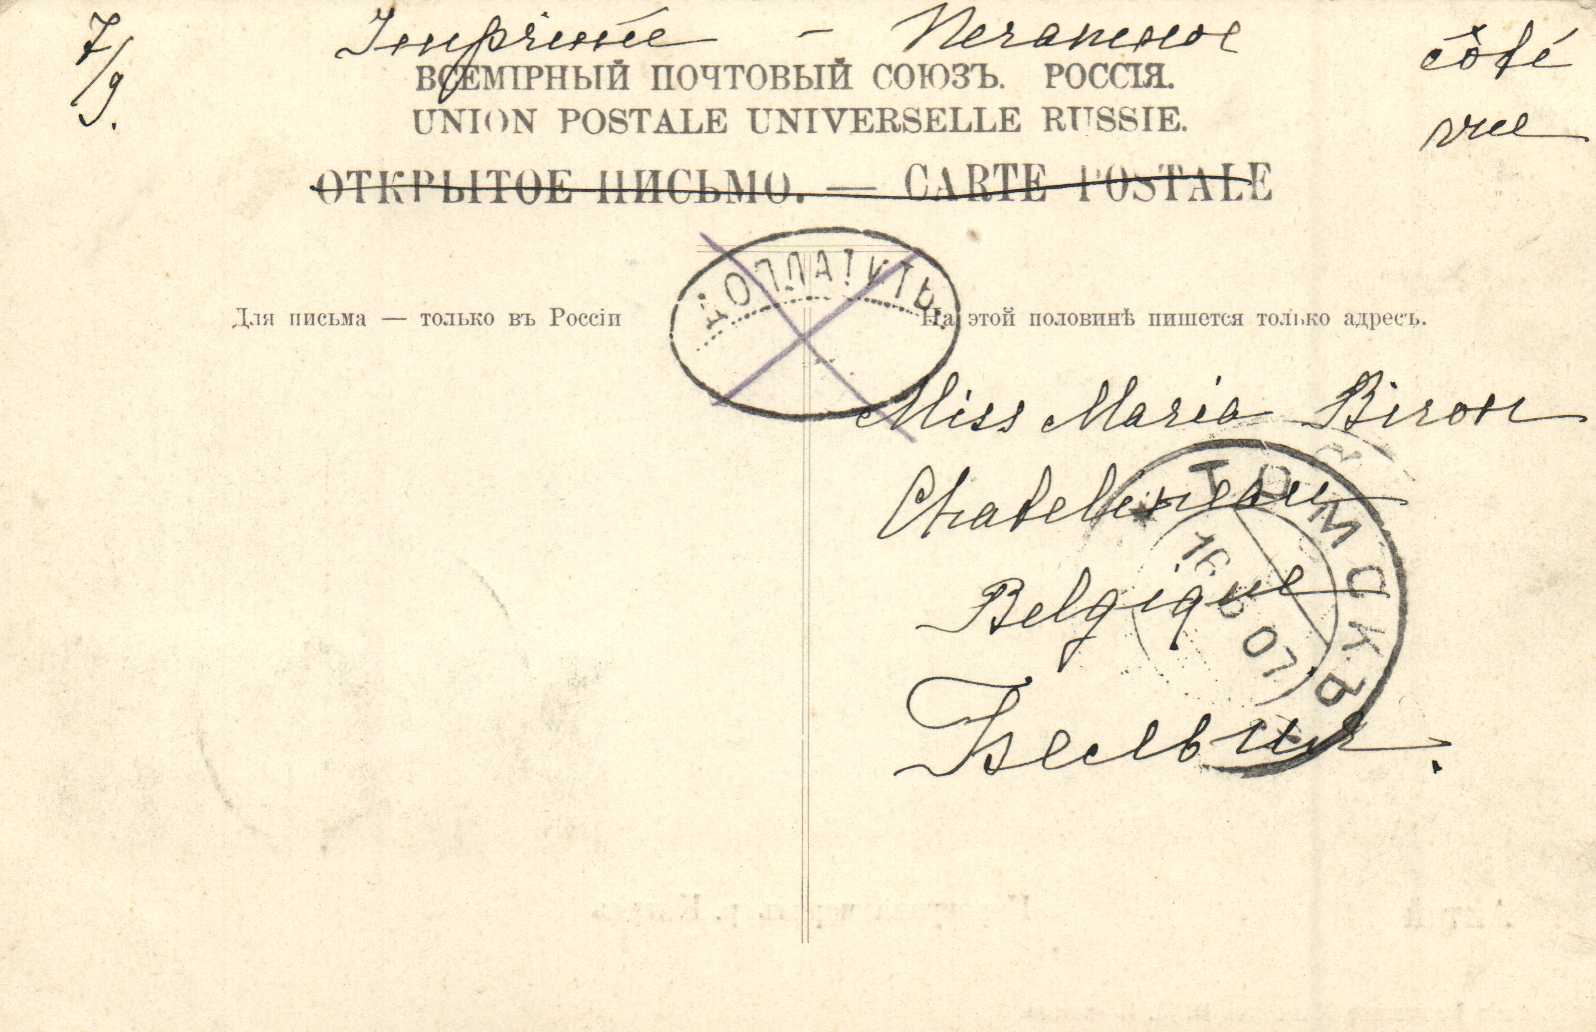 7/9. Imprimée — Печатное côté
vue
ВСЕМІРНЫЙ ПОЧТОВЫЙ СОЮЗЪ. РОССІЯ.
UNION POSTALE UNIVERSELLE RUSSIE.
ОТКРЫТОЕ ПИСЬМО. — CARTE POSTALE
ДОПЛАТИТЬ
Для письма — только въ Россіи
На этой половинѣ пишется только адресъ.
Miss Maria Biron
Chatelineau
Belgique
Бельгия.
ТОМСКЪ
16 07